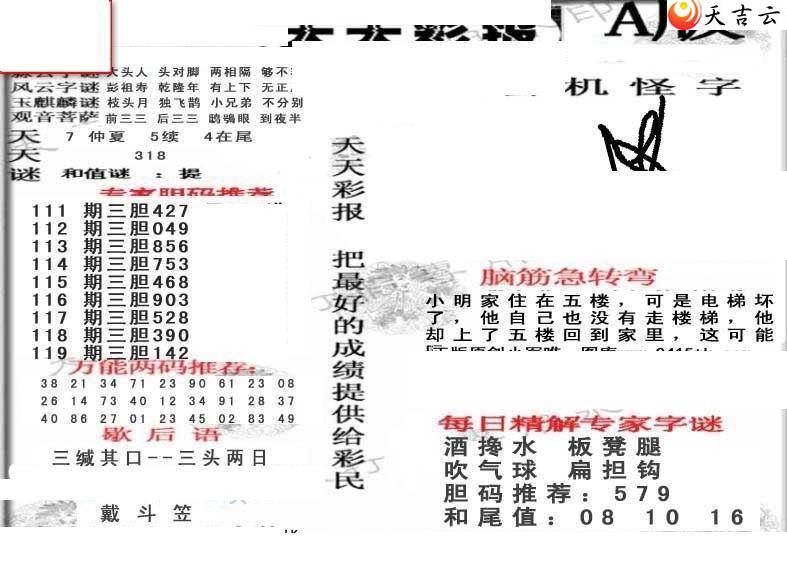 天吉云
机怪字
大头人 头对脚 两相隔
风云字谜 彭祖寿 乾隆年 有上下 无正
玉麒麟谜 枝头月 独飞鹊 小兄弟 不分别
观音菩萨 前三三 后三三 鸱鸮眼 到夜半
天 7 仲夏 5续 4在尾
天 318
谜 和值谜 : 提
专家胆码推荐
111 期三胆427
112 期三胆049
113 期三胆856
114 期三胆753
115 期三胆468
116 期三胆903
117 期三胆528
118 期三胆390
119 期三胆142
万能两码推荐:
38 21 34 71 23 90 61 23 08
26 14 73 40 12 34 91 28 37
40 86 27 01 23 45 02 83 49
歇后语
三缄其口--三头两日
戴斗笠
天天彩报 把最好的成绩提供给彩民
脑筋急转弯
小明家住在五楼，可是电梯坏
了，他自己也没有走楼梯，他
却上了五楼回到家里，这可能
每日精解专家字谜
酒搀水 板凳腿
吹气球 扁担钩
胆码推荐: 579
和尾值: 08 10 16